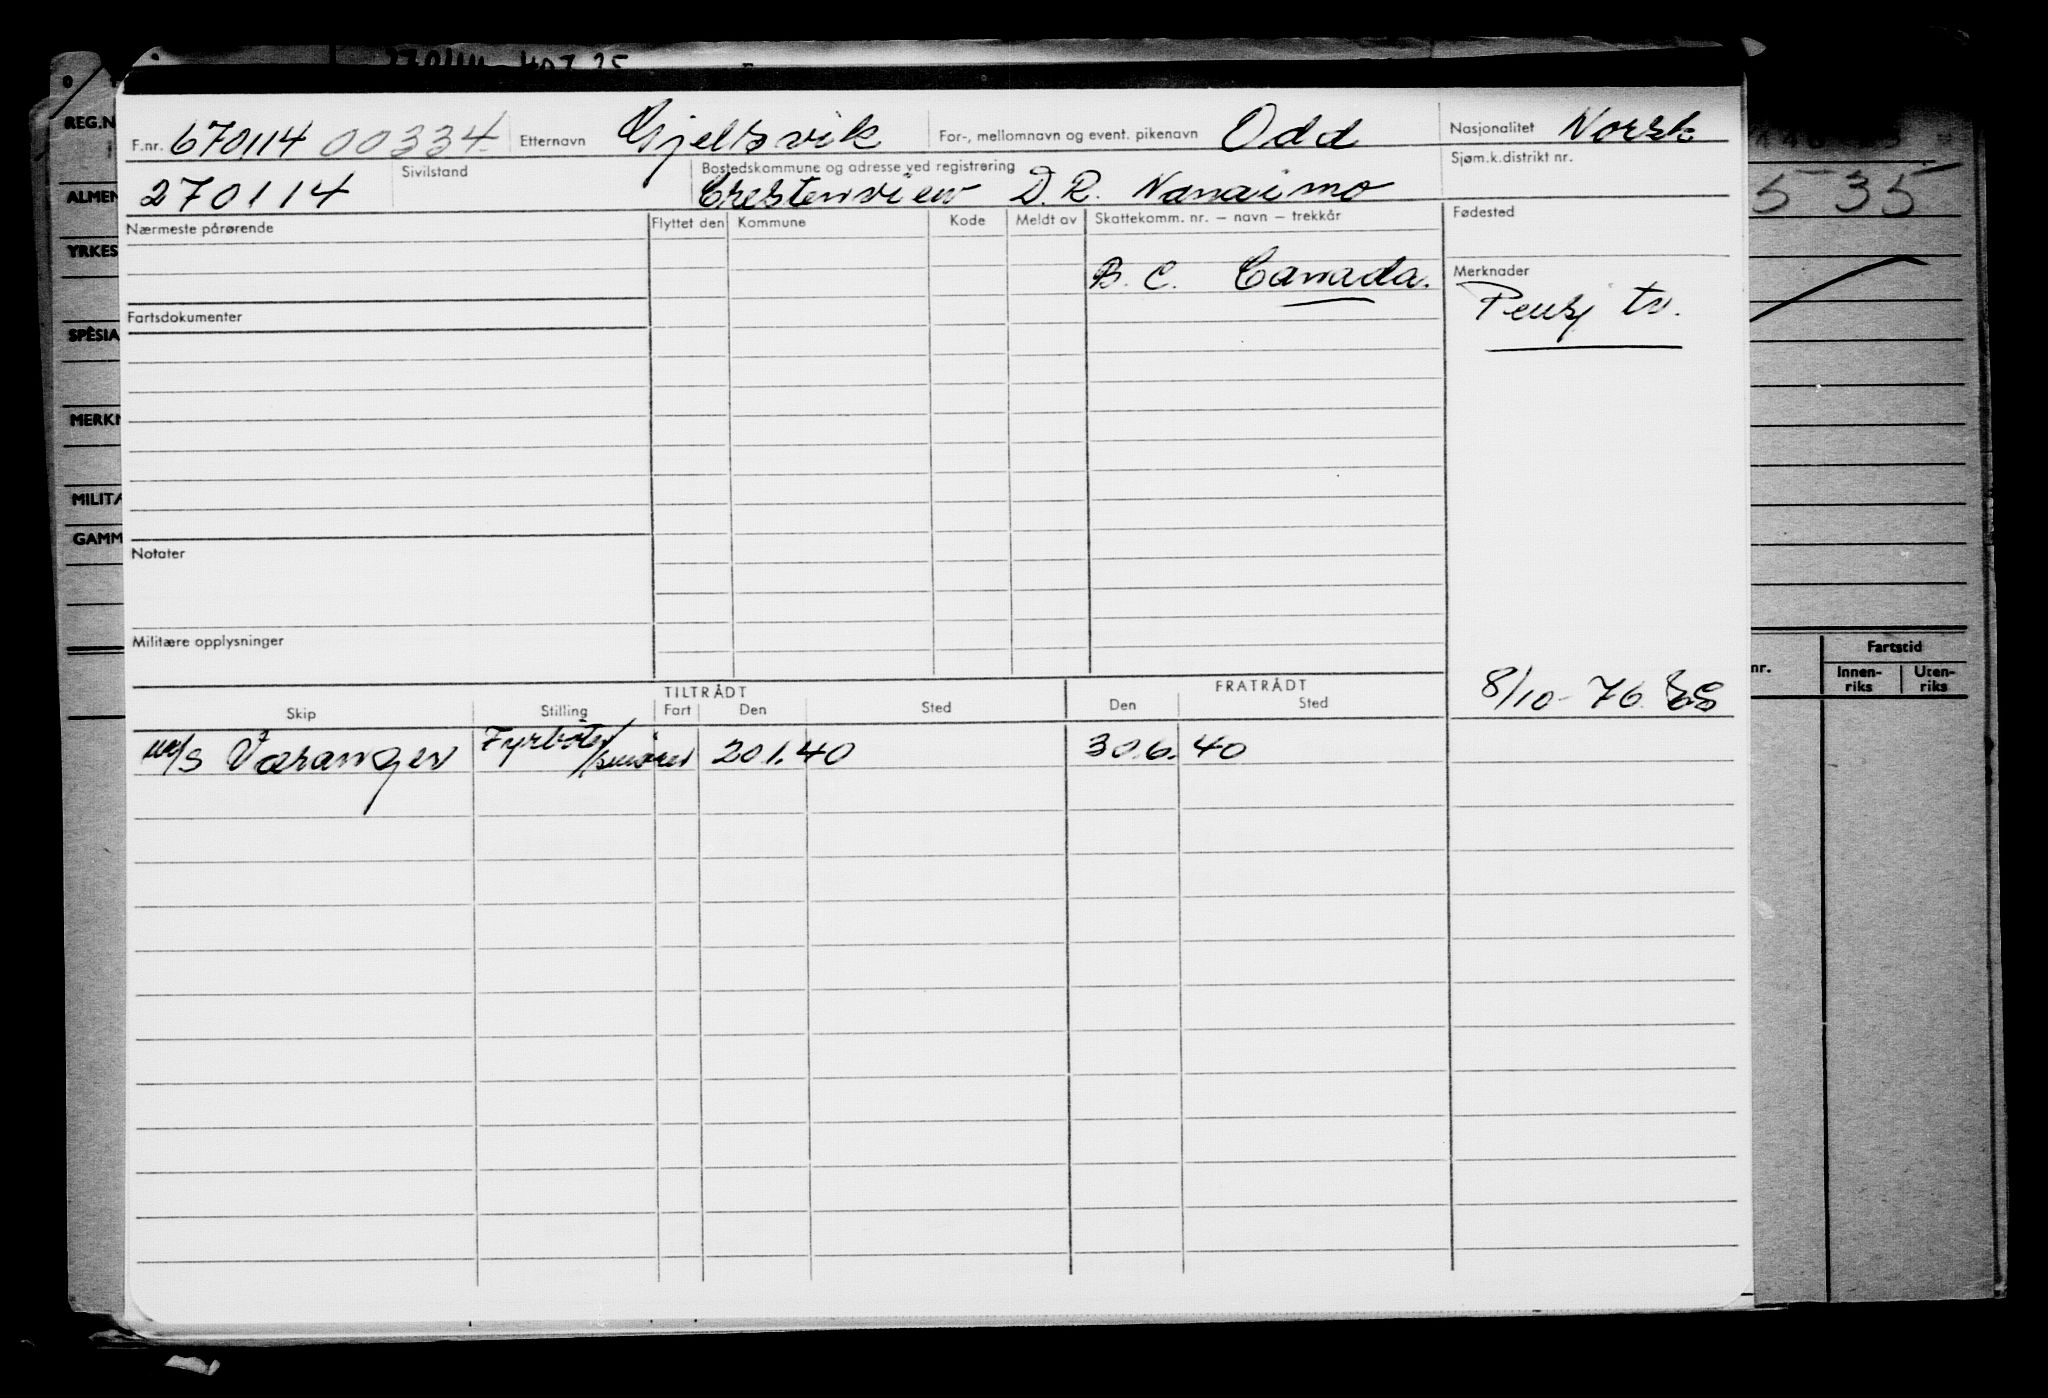 F.nr. 670114 00334 Etternavn Gjelsvik For-, mellomnavn og event. pikenavn Odd Nasjonalitet Norsk
270114 Sivilstand Bostedskommune og adresse ved registrering Sjøm.k.distrikt nr.
Crestenview D.R. Nanaimo
Nærmeste pårørende Flyttet den Kommune Kode Meldt av Skattekomm. nr. – navn – trekkår Fødested
B. C. Canada. Merknader
Fartsdokumenter Pensj tr.
Notater
Militære opplysninger
TILTRÅDT FRATRÅDT 8/10-76
Skip Stilling Fart Den Sted Den Sted
m/s Varanger Fyrbøter/smører 20.1.40 30.6.40
REG.N
ALMEN
YRKES
SPESIA
MERKN
MILITÆ
GAMM
5 35
nr. Fartstid
Innen-riks Uten-riks